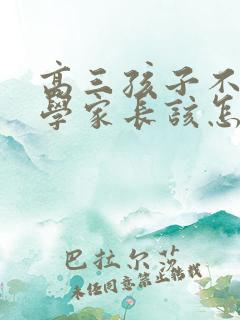 高三孩子不
學家长該怎
巴拉尔莎
未经同意禁止转载